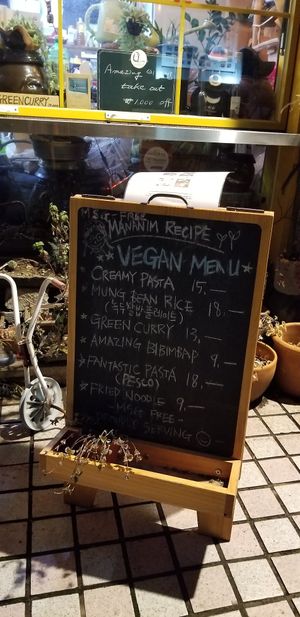 Amazing
take out
₩1,000 off
GREEN CURRY
MSG-FREE
MANANIM RECIPE
VEGAN MENU
CREAMY PASTA 15.-
MUNG BEAN RICE 18.-
GREEN CURRY 13.-
AMAZING BIBIMBAP 9.-
FANTASTIC PASTA 18.-
(PESCO)
FRIED NOODLE 9.-
-MSG FREE-
SERVING